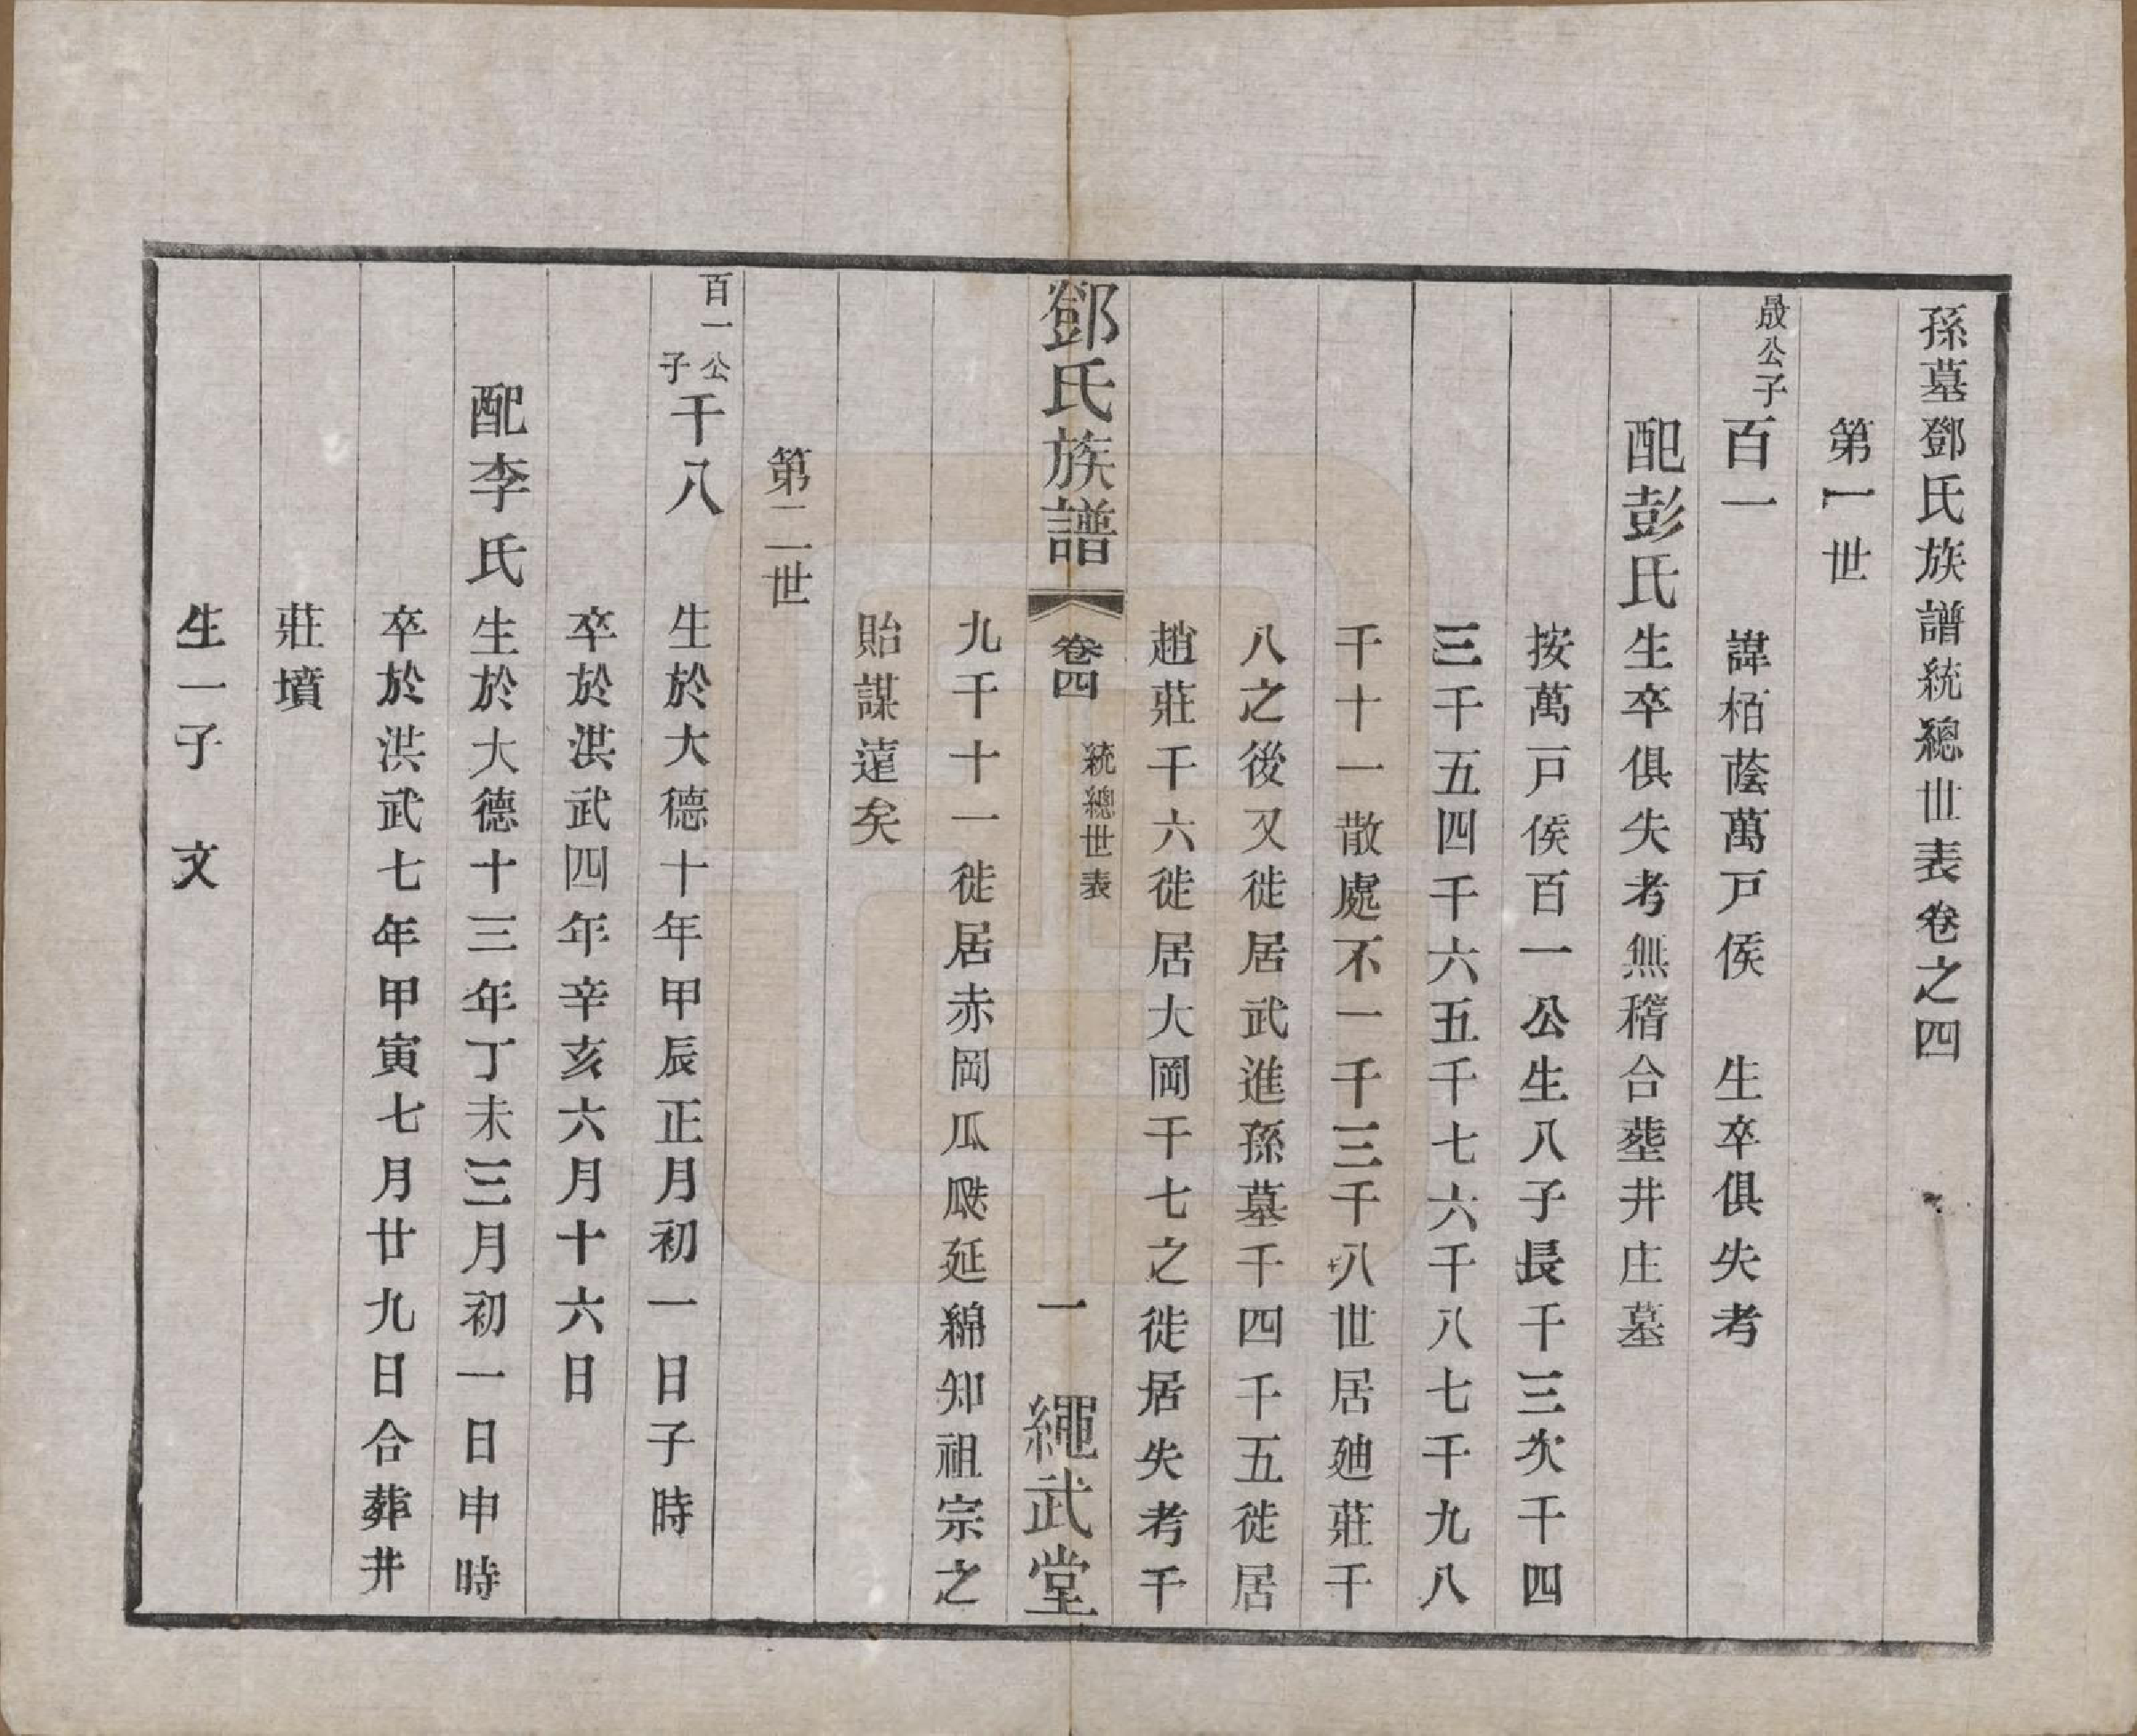 孫墓鄧氏族譜統總世表卷之四
第一世
晟公子
百一　諱栢蔭萬戸侯　生卒俱失考
配彭氏生卒俱失考無稽合塟井庄墓
按萬戸侯百一公生八子長千三次千四
三千五四千六五千七六千八七千九八
千十一散處不一千三千八世居廸莊千
八之後又徙居武進孫墓千四千五徙居
趙莊千六徙居大岡千七之徙居失考千
九千十一徙居赤岡瓜瓞延綿知祖宗之
貽謀遠矣
第二世
百一公子
千八　生於大德十年甲辰正月初一日子時
卒於洪武四年辛亥六月十六日
配李氏生於大德十三年丁未三月初一日申時
卒於洪武七年甲寅七月廿九日合葬井
莊墳
生一子　文
鄧氏族譜　卷四　統總世表　一　繩武堂